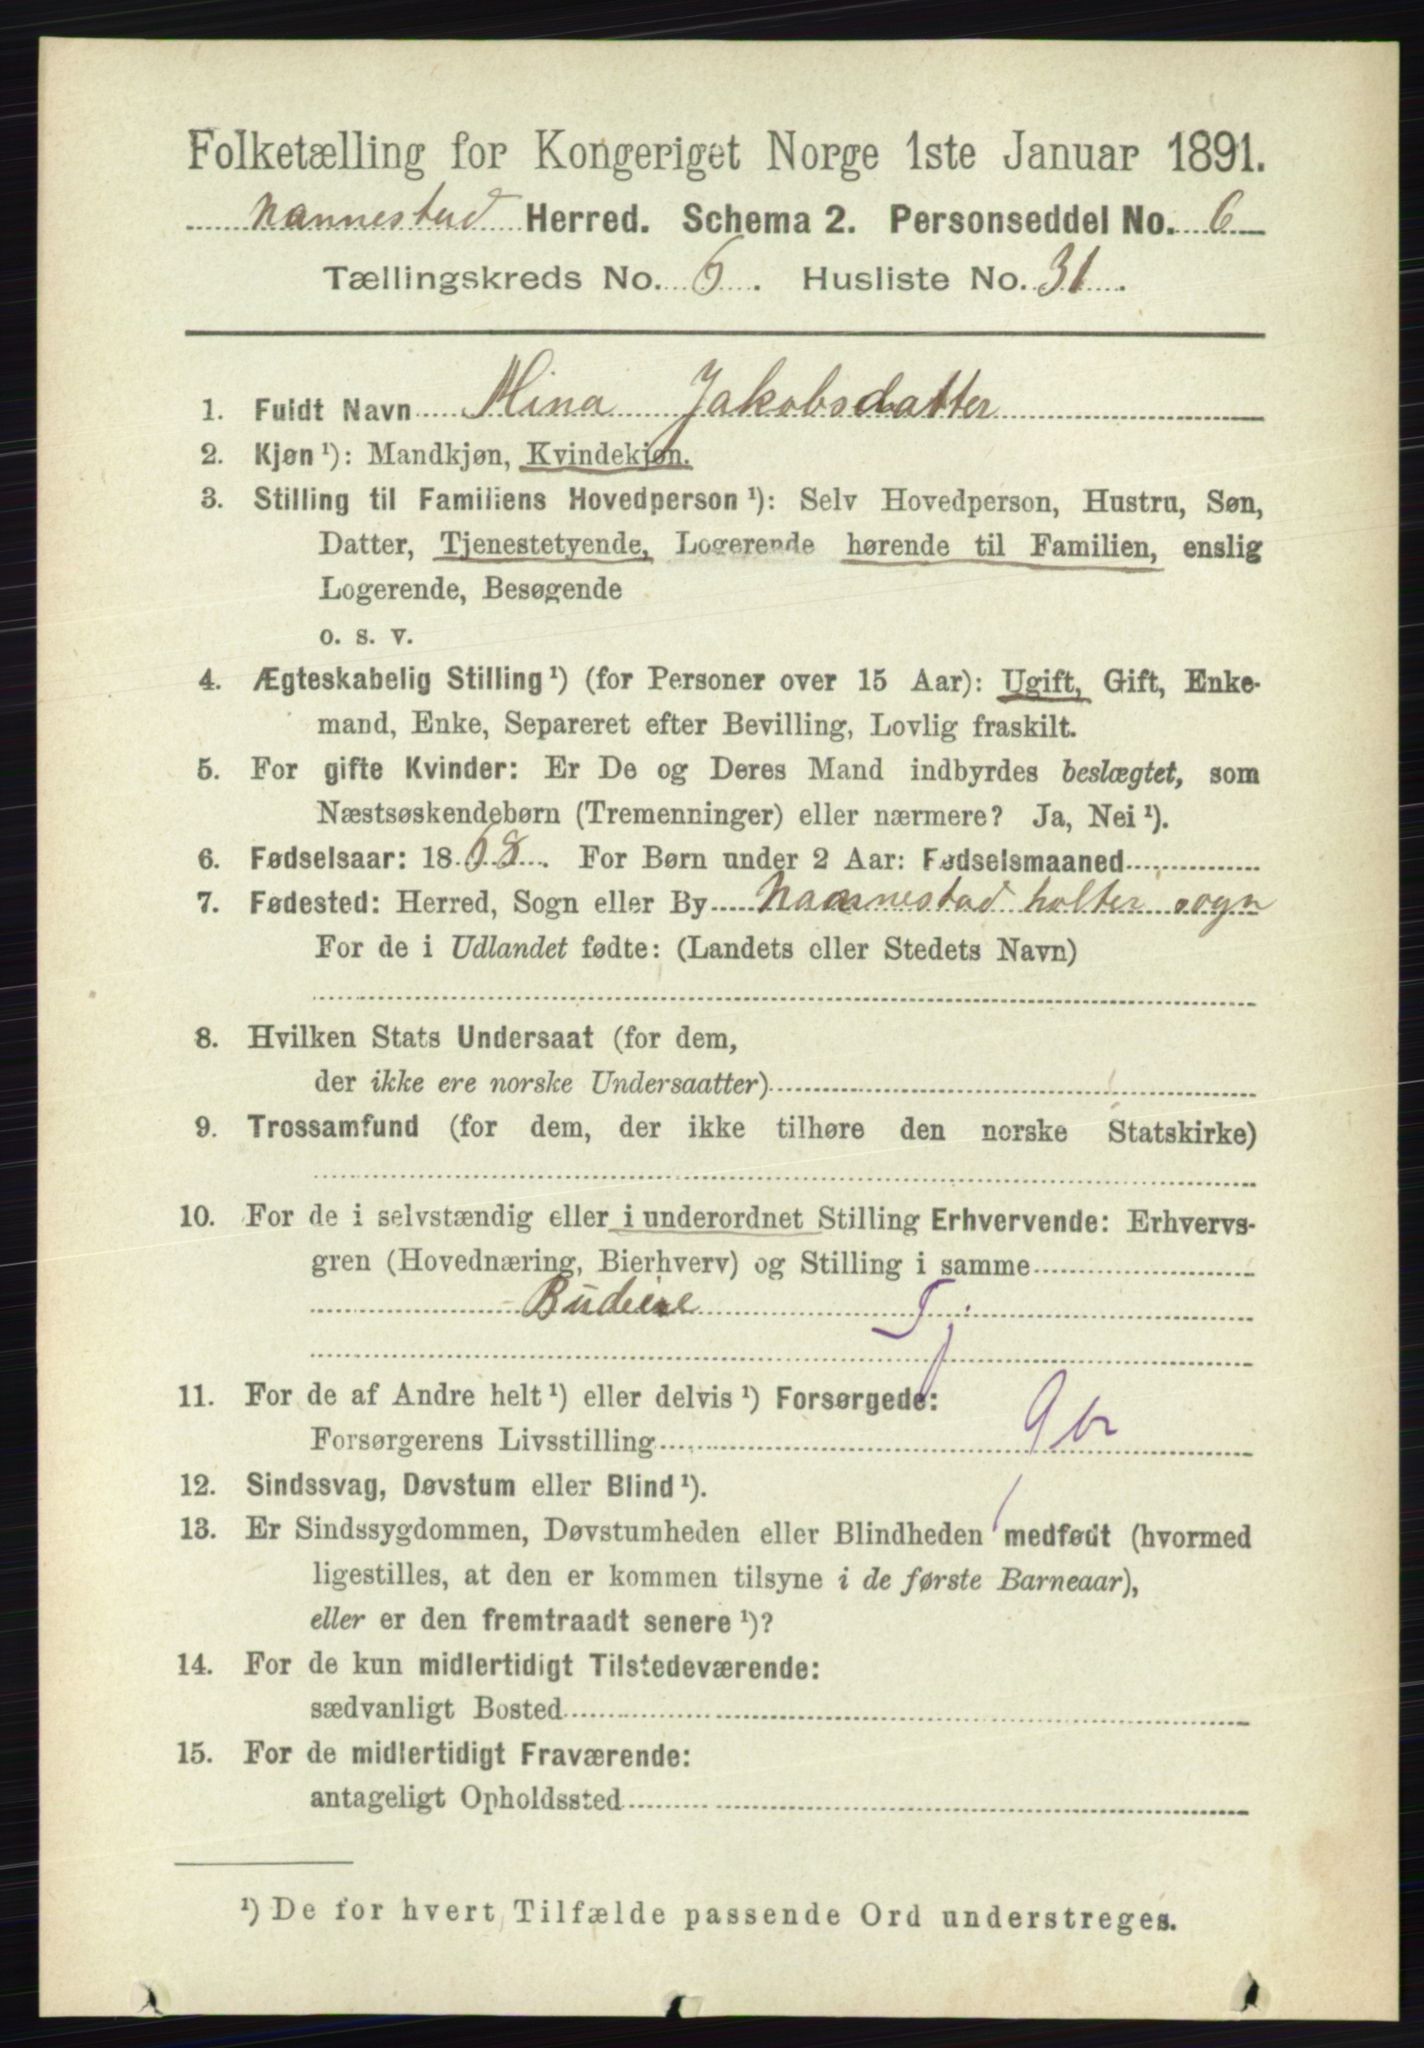 Folketælling for Kongeriget Norge 1ste Januar 1891.
Nannestad Herred. Schema 2. Personseddel No. 6
Tællingskreds No. 6. Husliste No. 31.
1. Fuldt Navn Mina Jakobsdatter
2. Kjøn ¹): Mandkjøn, Kvindekjøn.
3. Stilling til Familiens Hovedperson ¹): Selv Hovedperson, Hustru, Søn,
Datter, Tjenestetyende, Logerende hørende til Familien, enslig
Logerende, Besøgende
o. s. v.
4. Ægteskabelig Stilling ¹) (for Personer over 15 Aar): Ugift, Gift, Enke-
mand, Enke, Separeret efter Bevilling, Lovlig fraskilt.
5. For gifte Kvinder: Er De og Deres Mand indbyrdes beslægtet, som
Næstsøskendebørn (Tremenninger) eller nærmere? Ja, Nei ¹).
6. Fødselsaar: 1868. For Børn under 2 Aar: Fødselsmaaned
7. Fødested: Herred, Sogn eller By Nannestad holter sogn
For de i Udlandet fødte: (Landets eller Stedets Navn)
8. Hvilken Stats Undersaat (for dem,
der ikke ere norske Undersaatter)
9. Trossamfund (for dem, der ikke tilhøre den norske Statskirke)
10. For de i selvstændig eller i underordnet Stilling Erhvervende: Erhvervs-
gren (Hovednæring, Bierhverv) og Stilling i samme
Budeie Tj
11. For de af Andre helt ¹) eller delvis ¹) Forsørgede:
Forsørgerens Livsstilling
12. Sindssvag, Døvstum eller Blind ¹).
13. Er Sindssygdommen, Døvstumheden eller Blindheden medfødt (hvormed
ligestilles, at den er kommen tilsyne i de første Barneaar),
eller er den fremtraadt senere ¹)?
14. For de kun midlertidigt Tilstedeværende:
sædvanligt Bosted
15. For de midlertidigt Fraværende:
antageligt Opholdssted
¹) De for hvert Tilfælde passende Ord understreges.